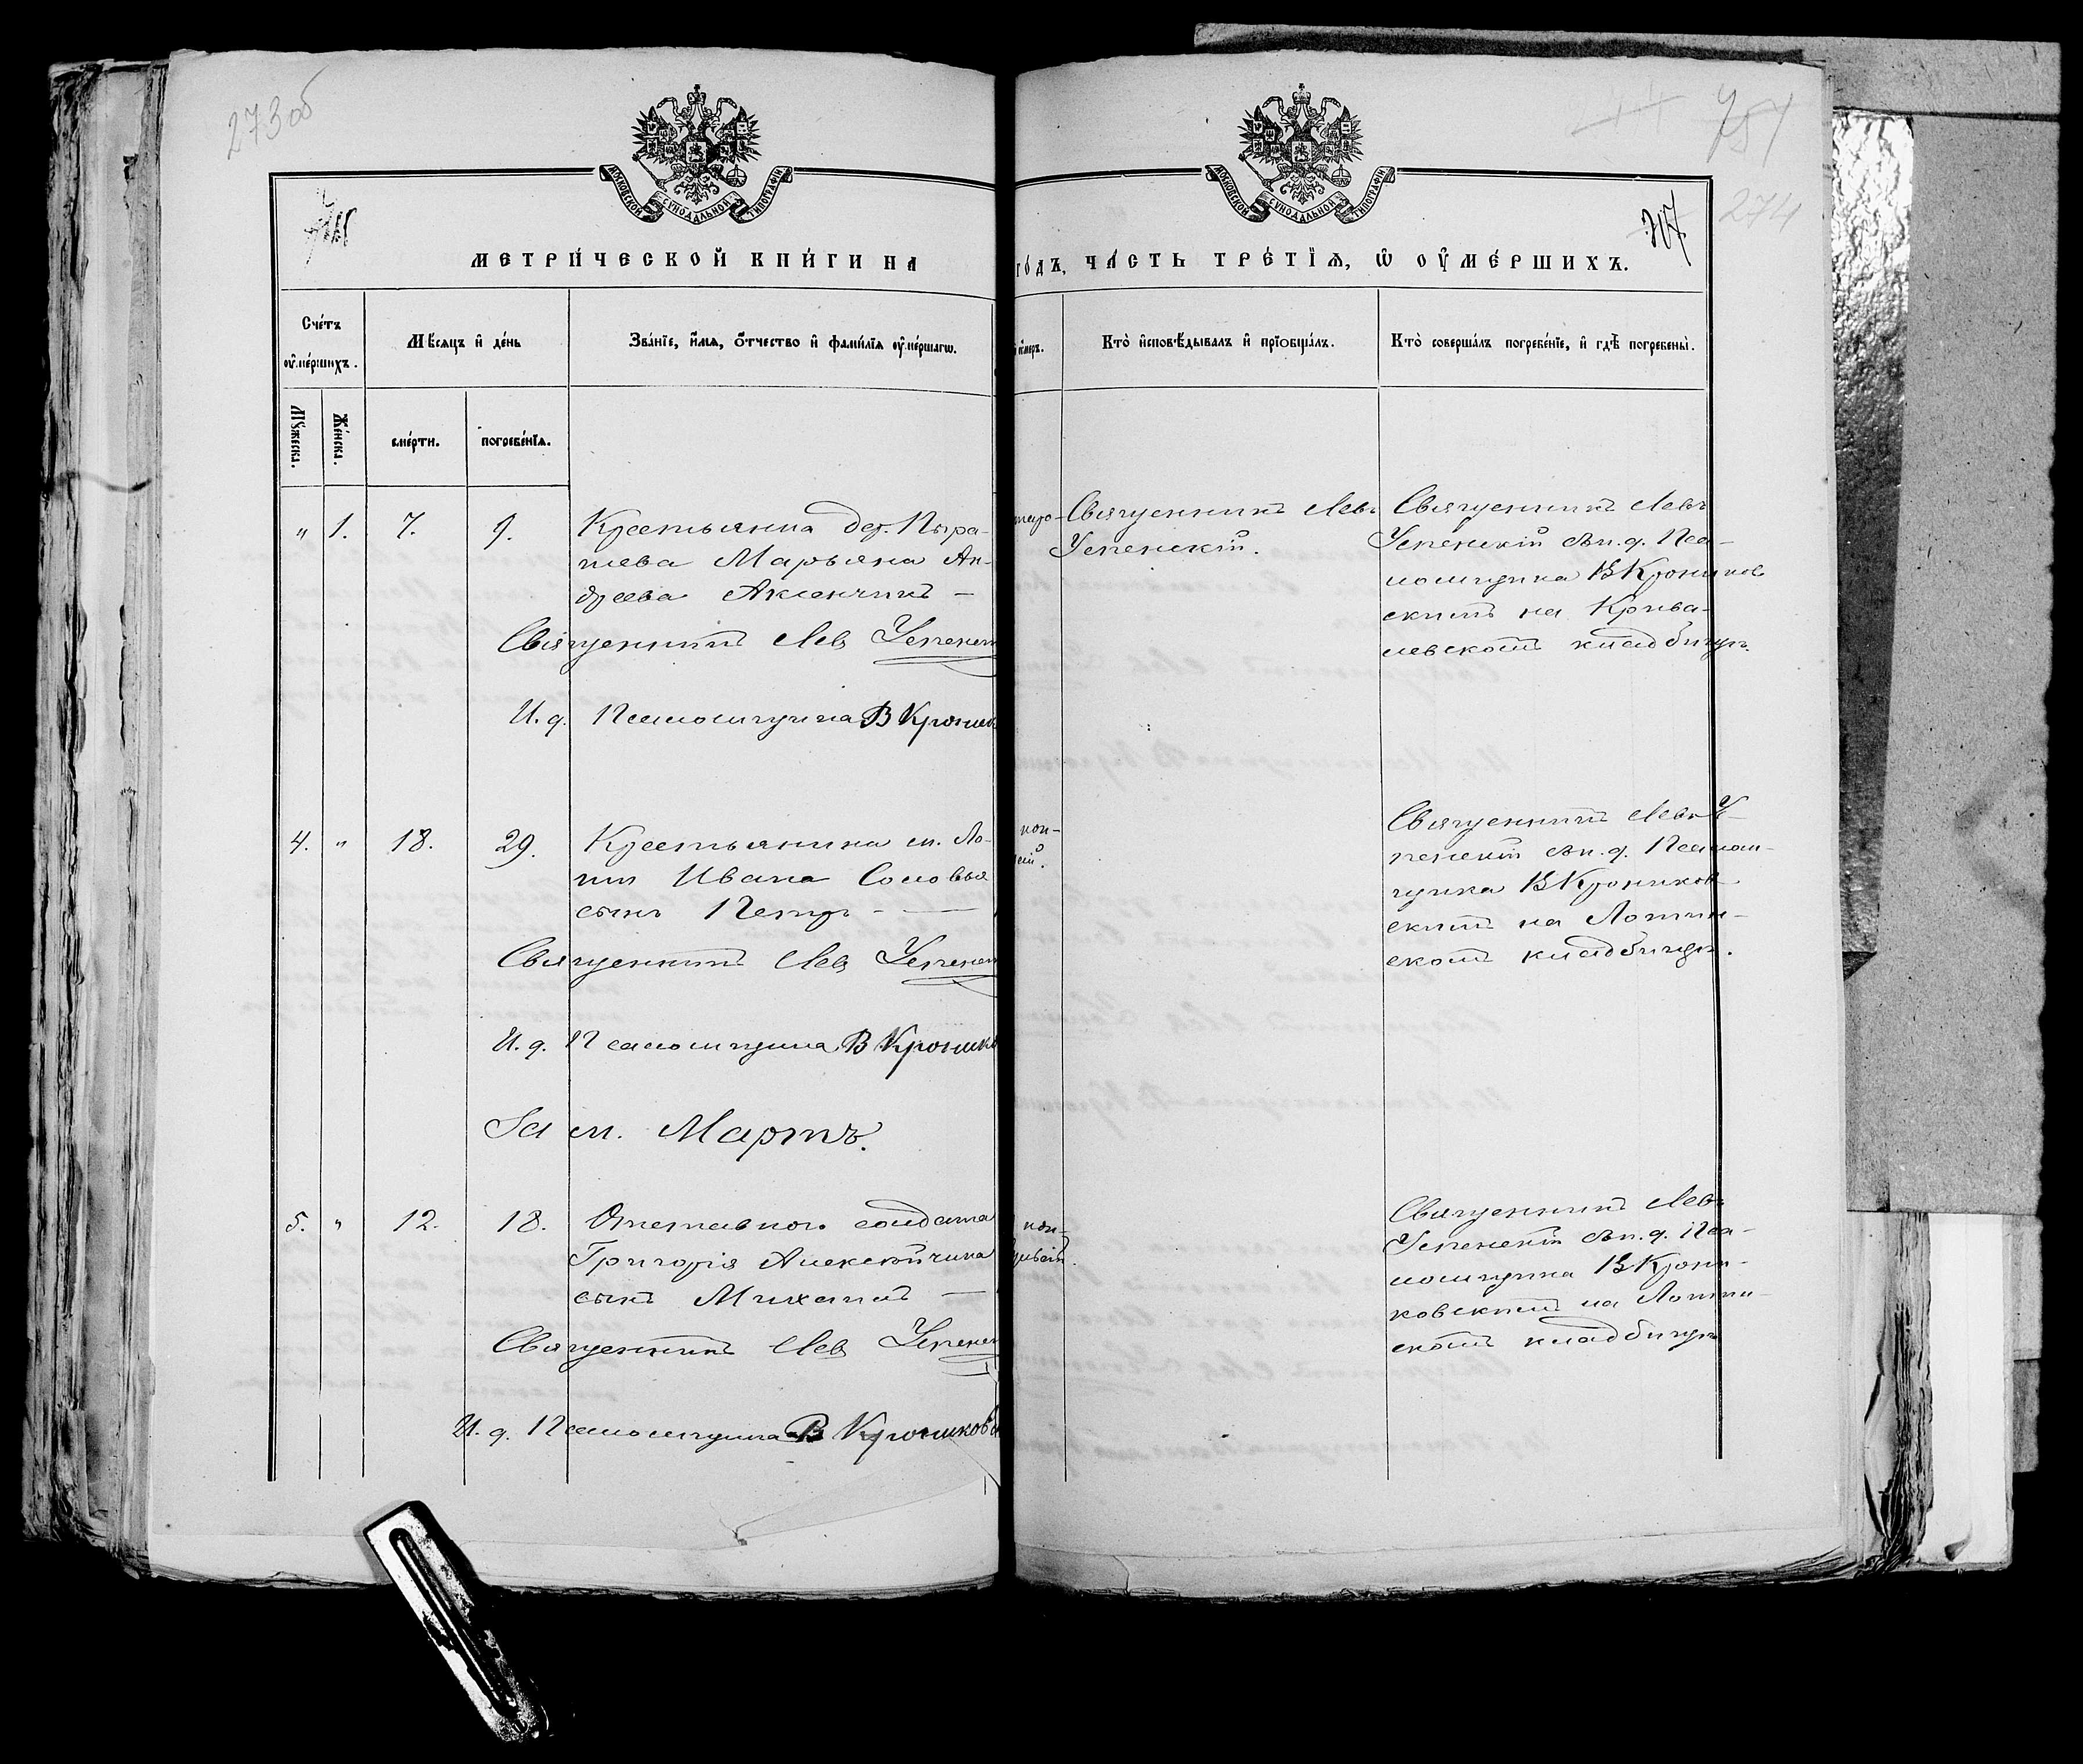 273 об
МОСКОВСКОЙ СѴНОДАЛЬНОЙ ТИПОГРАФІИ
МЕТРИ́ЧЕСКОЙ КНИ́ГИ НА
Сче́тъ оу҆ме́ршихъ.
Мѣ́сяцъ и҆ де́нь
Зва́нїе, и҆́мя, ѻ҆́тчество и҆ фами́лїя оу҆ме́ршагѡ.
Мꙋ́жеска.
Же́нска.
сме́рти.
погребе́нїя.
" 1. 7. 9. Крестьянка дер.
Марьяна Ан-
дреева
Священникъ Левъ Успенск
И. д. Псаломщика В Крониковс
4. " 18. 29. Крестьянина м. Ло-
Ивана Соловья
сынъ Петръ —
Священникъ Левъ Успенск
И. д. Псаломщика В Крониковс
За м. Мартъ.
5. " 12. 18. Отставного солдата
Григорія
сынъ Михаилъ —
Священникъ Левъ Успенск
И. д. Псаломщика В Крониковс
751
274
МОСКОВСКОЙ СѴНОДАЛЬНОЙ ТИПОГРАФІИ
ГО́ДЪ, ЧА́СТЬ ТРЕ́ТЇѦ, Ѡ҆ ОУ҆МЕ́РШИХЪ.
Кто̀ и҆сповѣ́дывалъ и҆ прїобща́лъ.
Кто̀ соверша́лъ погребе́нїе, и҆ гдѣ̀ погребены̀.
Священникъ Левъ
Успенскій.
Священникъ Левъ
Успенскій съ и. д. Пса-
ломщика В Кроников
скимъ на Крива-
левскомъ кладбищѣ.
кон-
Священникъ Левъ У-
спенскій съ и. д. Псалом-
щика В Кроников
скимъ на Лотин-
скомъ кладбищѣ.
кон-
Священникъ Левъ
Успенскій съ и. д. Пса-
ломщика В Крони-
ковскимъ на Лотин-
скомъ кладбищѣ